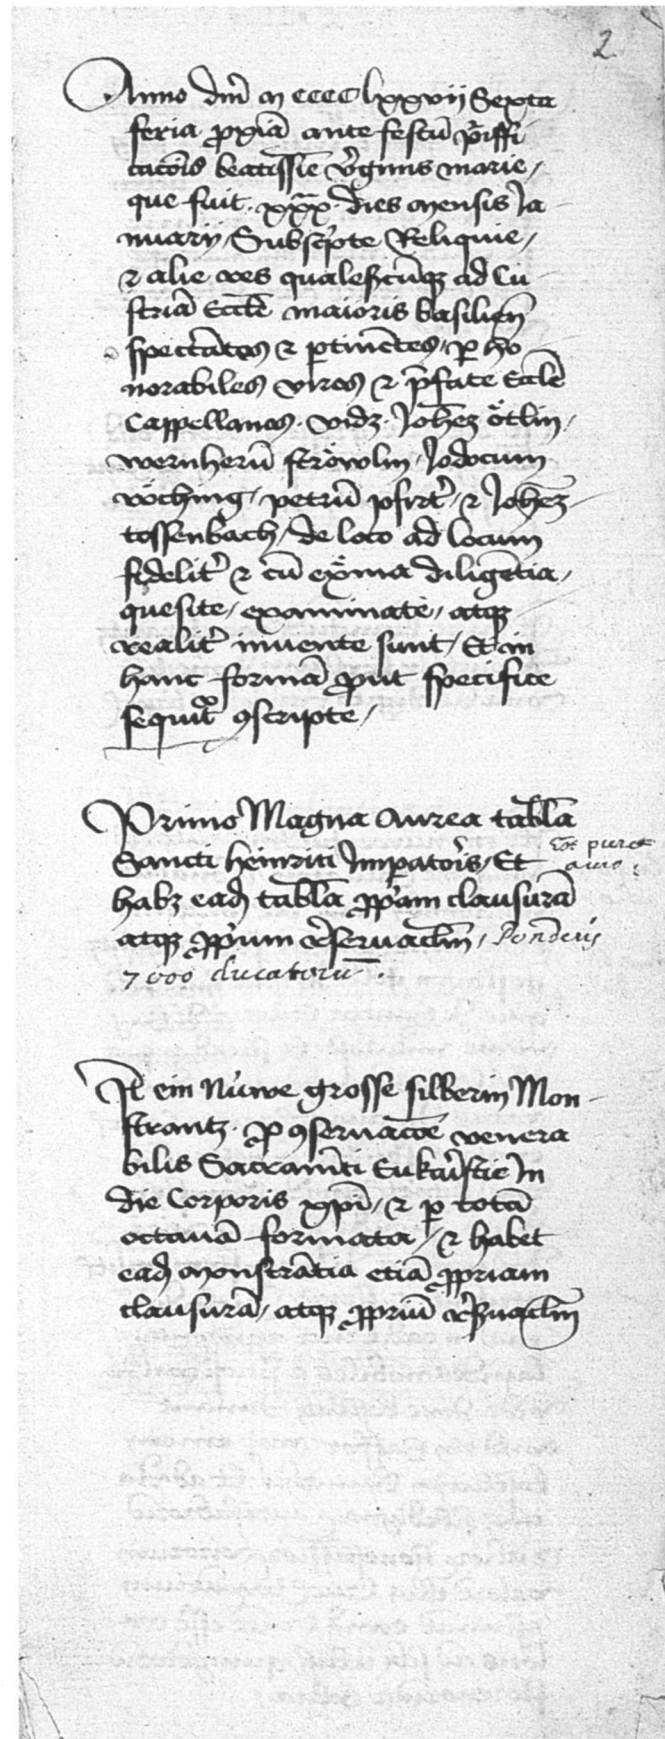 2
Anno dm̄ m cccc lxxvij Sexta
feria ꝓxiā ante festū puriffi
cacōis beatissīe v̓ginis marie /
que fuit · xxx dies mensis Ja
nuarij / Subscṗte Reliquie /
⁊ alie res qualescūqꝫ ad Cu
striā Eccłē maioris basilieñ
spectātes ⁊ ꝑtinētes / ꝑ ho
norabiles viros ⁊ p̄fate Eccłē
Cappellanos · vidꝫ · Joh̄eꝫ ötlin /
wernherū ströwlin / Jodocum
vöching / petrū pfirt̓ / ⁊ Joh̄eꝫ
tossenbach / de loco ad locum
fidelit̓ ⁊ cū exīma diligētia /
quesite / examinate / atqꝫ
realit̓ inuente sunt / Et in
hanc formā ꝓut specifice
sequit̓ ꝯscripte /
Primo Magna Aurea tabła
Sancti heinrici Imꝑator̓is / Et
Ex puro
auro
habꝫ eadꝫ tabła ꝓp̓am clausurā
atqꝫ ꝓp̓um ꝯ̓seruacłm / Ponderis
7000 ducatorū .
It̄ ein Nüwe grosse silberin Mon
strantz · ꝓ ꝯseruacōe venera
bilis Sacramēti Eukar̓istie In
die Corporis xp̄i / ⁊ ꝑ totā
octauā formata / ⁊ habet
eadꝫ monstrātia etiā ꝓpriam
clausurā / atqꝫ ꝓpriū ꝯ̓seruacłm